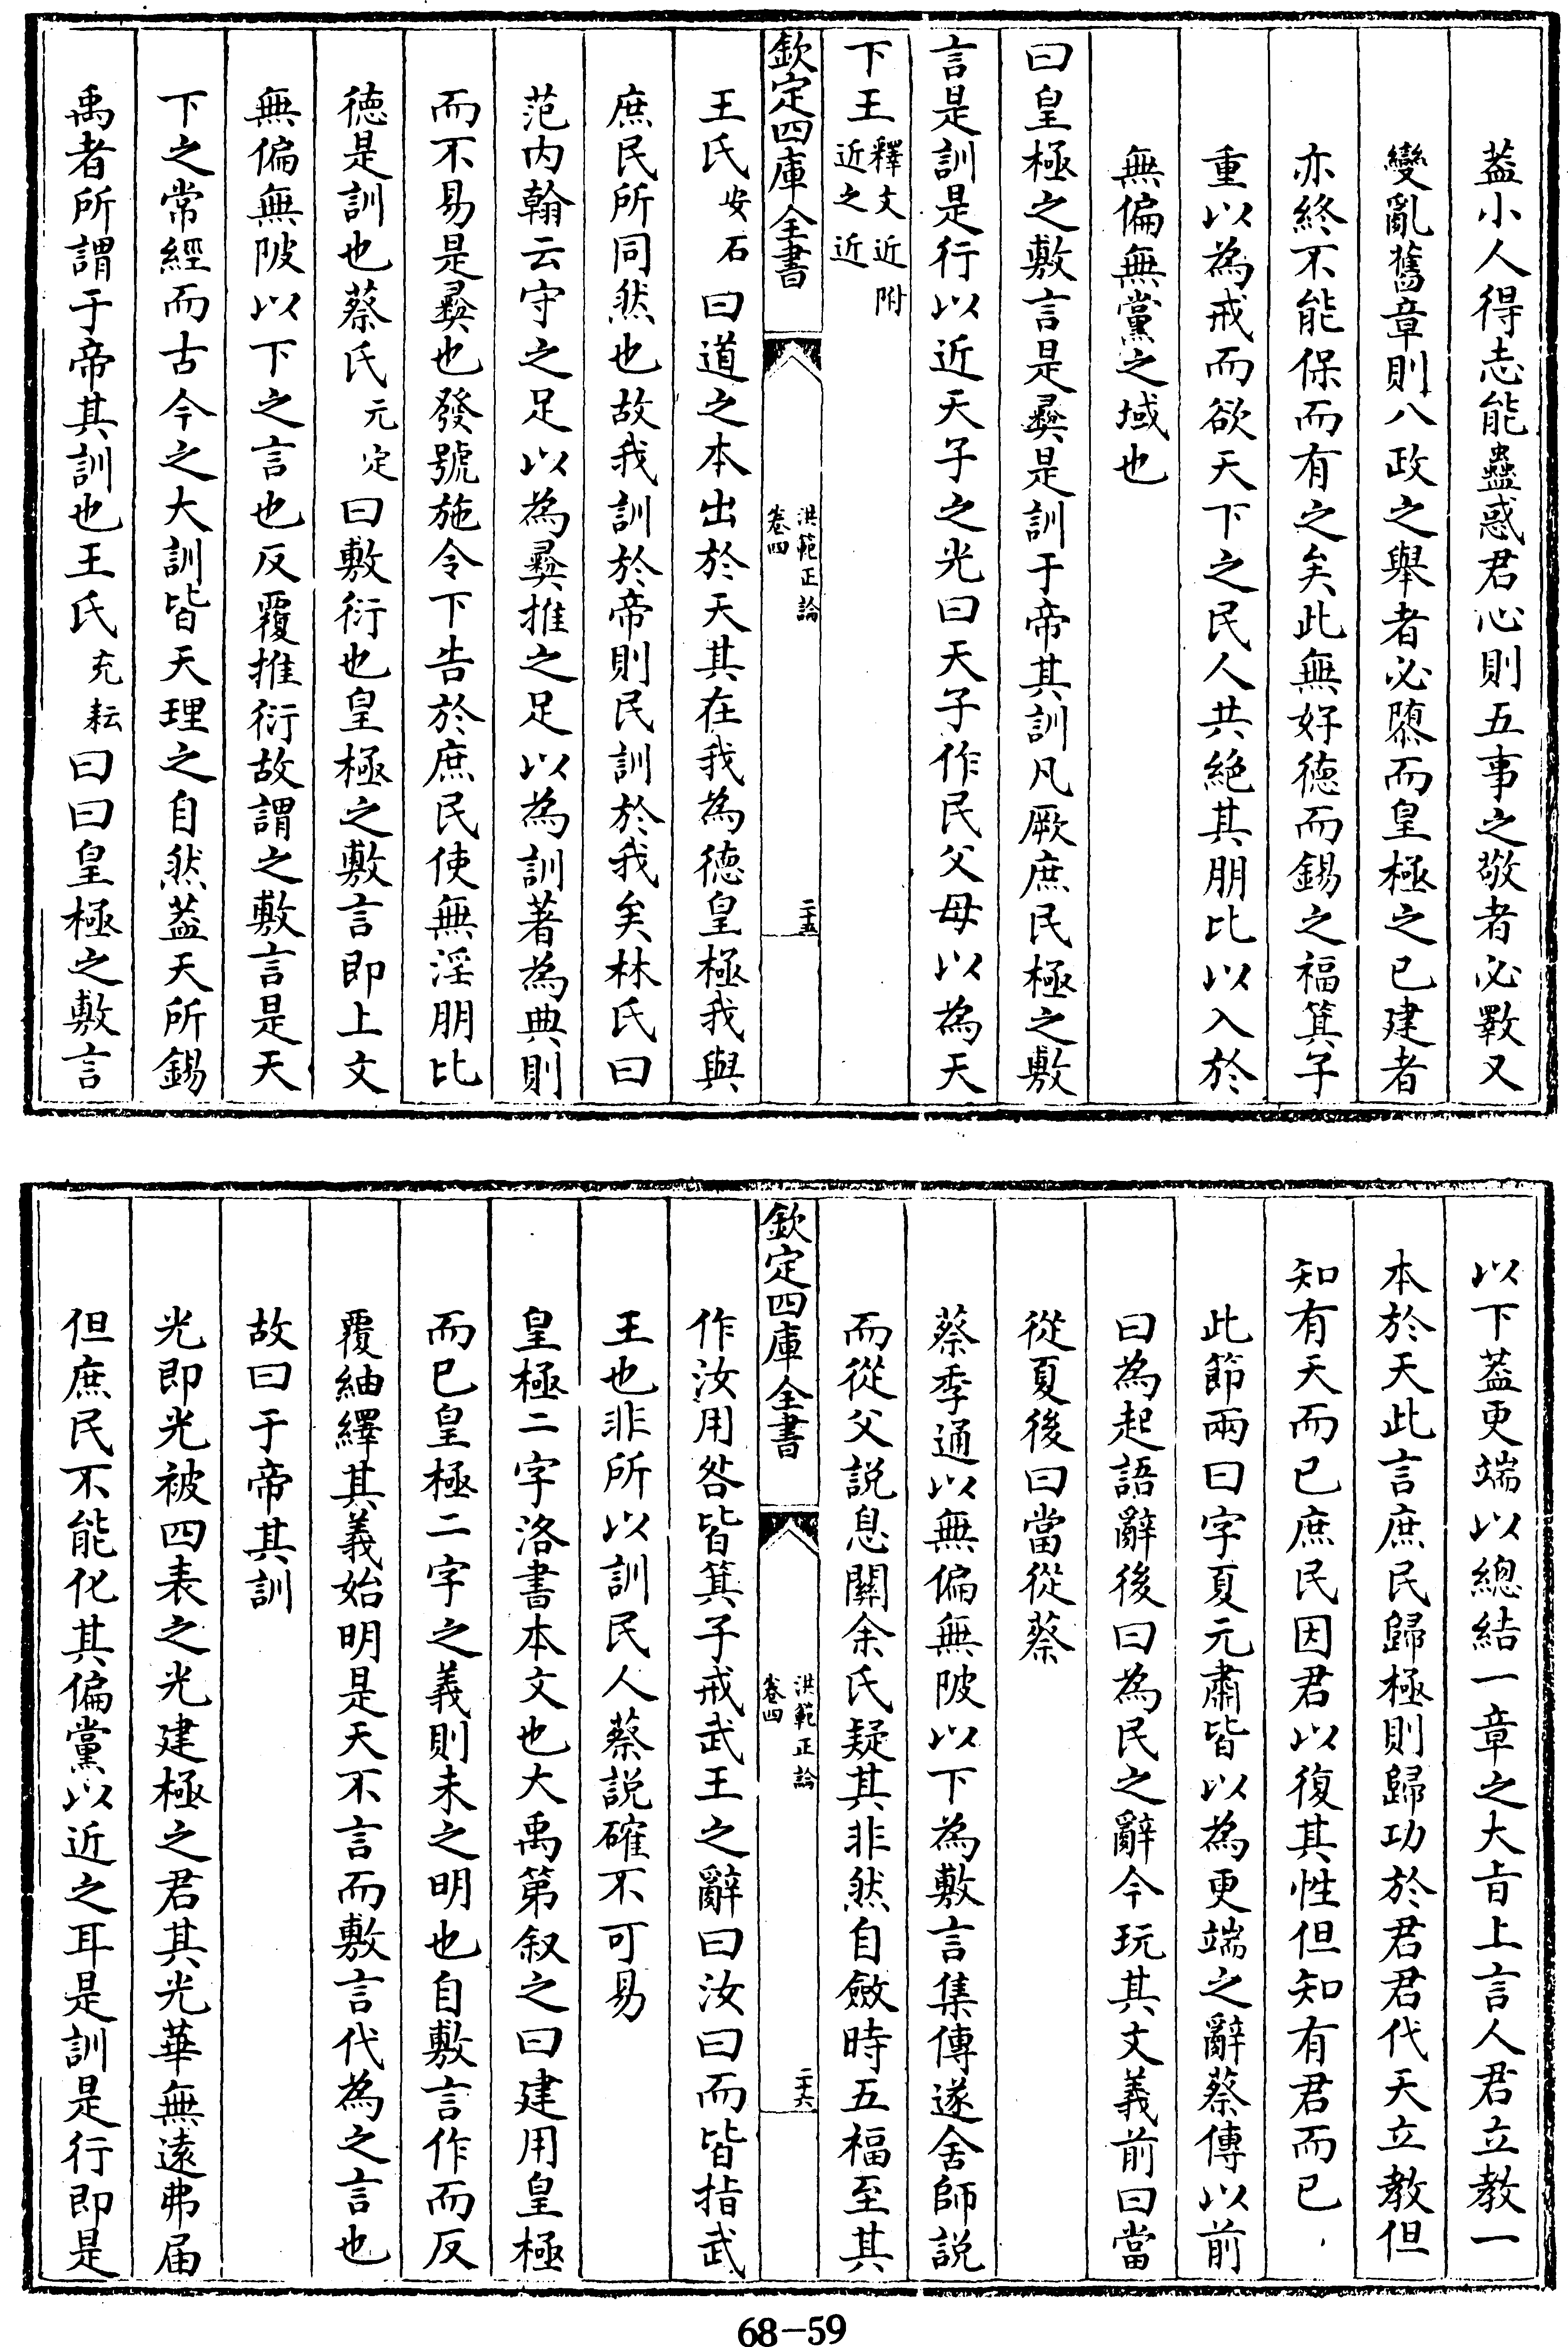 葢小人得志能蠱惑君心則五事之敬者必斁又
變亂舊章則八政之舉者必隳而皇極之已建者
亦終不能保而有之矣此無好徳而錫之福箕子
重以為戒而欲天下之民人共絶其朋比以入於
無偏無黨之域也
曰皇極之敷言是彞是訓于帝其訓凡厥庶民極之敷
言是訓是行以近天子之光曰天子作民父母以為天
下王釋文近附近之近
欽定四庫全書
洪範正論
卷四
二十五
王氏安石曰道之本出於天其在我為徳皇極我與
庶民所同然也故我訓於帝則民訓於我矣林氏曰
范内翰云守之足以為彞推之足以為訓著為典則
而不易是彞也發號施令下告於庶民使無淫朋比
徳是訓也蔡氏元定曰敷衍也皇極之敷言即上文
無偏無陂以下之言也反覆推衍故謂之敷言是天
下之常經而古今之大訓皆天理之自然葢天所錫
禹者所謂于帝其訓也王氏充耘曰曰皇極之敷言
以下葢更端以總結一章之大㫖上言人君立教一
本於天此言庶民歸極則歸功於君君代天立教但
知有天而已庶民因君以復其性但知有君而已
此節兩曰字夏元肅皆以為更端之辭蔡傳以前
曰為起語辭後曰為民之辭今玩其文義前曰當
從夏後曰當從蔡
蔡季通以無偏無陂以下為敷言集傳遂舍師説
而從父説息闗余氏疑其非然自斂時五福至其
欽定四庫全書
洪範正論
卷四
二十六
作汝用咎皆箕子戒武王之辭曰汝曰而皆指武
王也非所以訓民人蔡説確不可易
皇極二字洛書本文也大禹第叙之曰建用皇極
而已皇極二字之義則未之明也自敷言作而反
覆紬繹其義始明是天不言而敷言代為之言也
故曰于帝其訓
光即光被四表之光建極之君其光華無逺弗届
但庶民不能化其偏黨以近之耳是訓是行即是
68-59